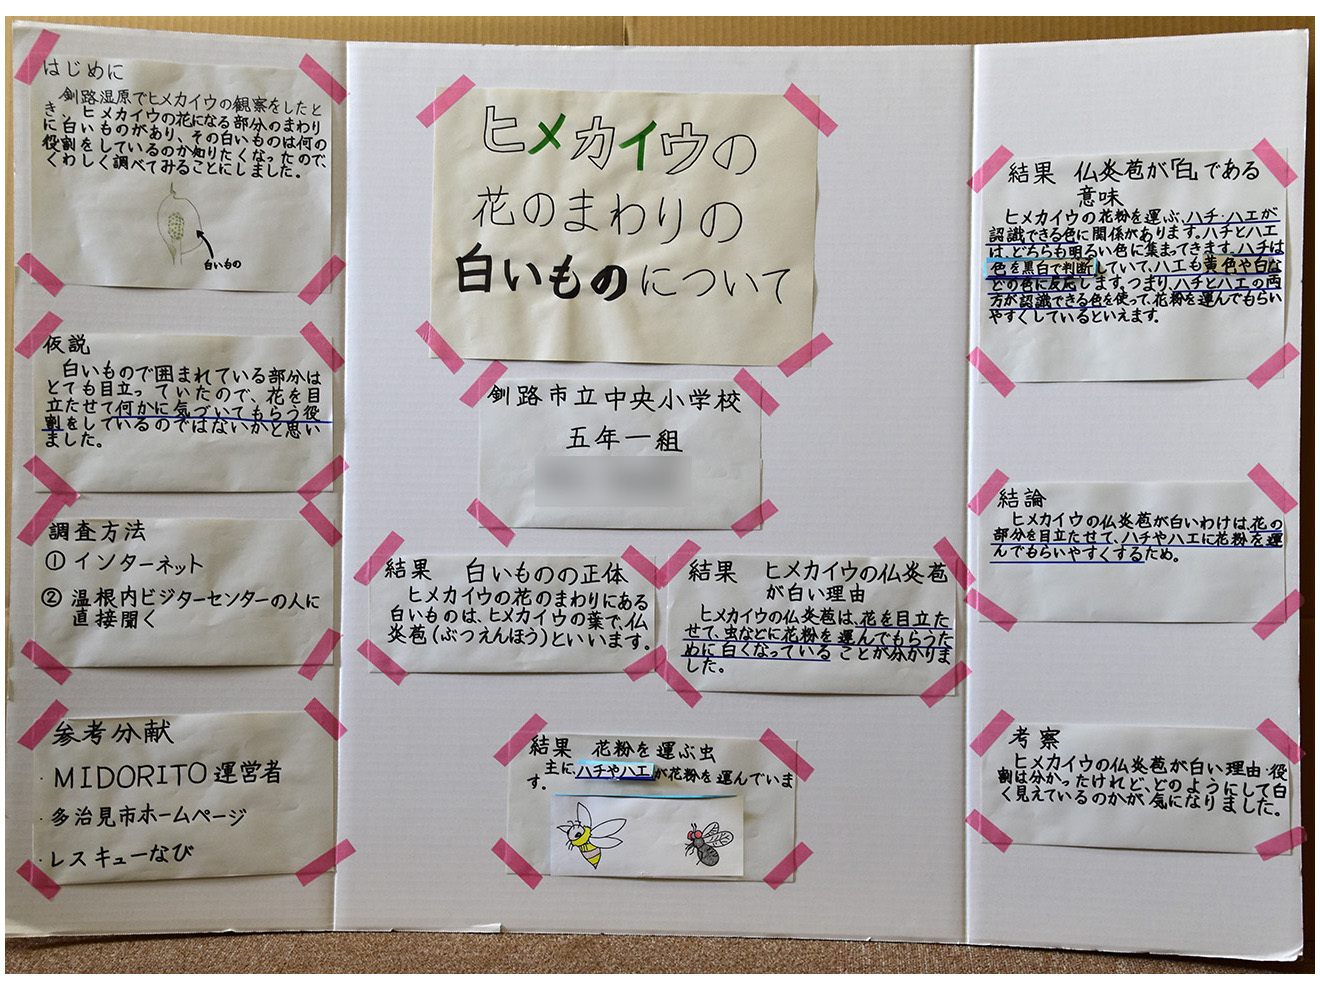 はじめに
釧路湿原でヒメカイウの観察をしたと
き、ヒメカイウの花になる部分のまわり
に白いものがあり、その白いものは何の
役割をしているのか知りたくなったので
くわしく調べてみることにしました。
白いもの
仮説
白いもので囲まれている部分は
とても目立っていたので、花を目
立たせて何かに気づいてもらう役
割をしているのではないかと思い
ました。
調査方法
① インターネット
② 温根内ビジターセンターの人に
直接聞く
参考分献
・MIDORITO運営者
・多治見市ホームページ
・レスキューなび
ヒメカイウの
花のまわりの
白いものについて
釧路市立中央小学校
五年一組
結果 白いものの正体
ヒメカイウの花のまわりにある
白いものは、ヒメカイウの葉で、仏
炎苞(ぶつえんほう)といいます。
結果 ヒメカイウの仏炎苞
が白い理由
ヒメカイウの仏炎苞は、花を目立た
せて、虫などに花粉を運んでもらうた
めに白くなっていることが分かりま
した。
結果 花粉を運ぶ虫
主に、ハチやハエが花粉を運んでいま
す。
結果 仏炎苞が「白」である
意味
ヒメカイウの花粉を運ぶ、ハチ・ハエが
認識できる色に関係があります。ハチとハエ
は、どちらも明るい色に集まってきます。ハチは
色を黒白で判断していて、ハエも黄色や白な
どの色に反応します。つまり、ハチとハエの両
方が認識できる色を使って、花粉を運んでもらい
やすくしているといえます。
結論
ヒメカイウの仏炎苞が白いわけは、花の
部分を目立たせて、ハチやハエに花粉を運
んでもらいやすくするため。
考察
ヒメカイウの仏炎苞が白い理由・役
割は分かったけれど、どのようにして白
く見えているのかが気になりました。